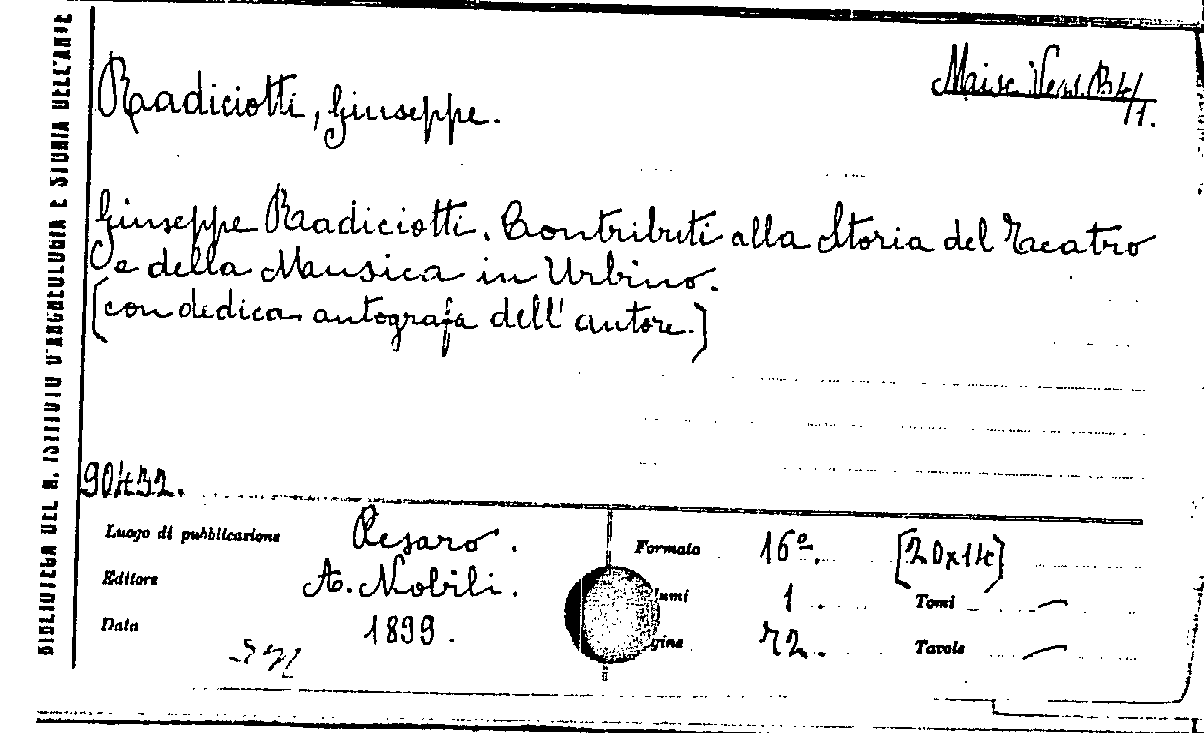 BIBLIOTECA DEL R. ISTITUTO D'ARCHEOLOGIA E STORIA DELL'ARTE
Radiciotti, Giuseppe.
Misc. Vens. B4/1.
Giuseppe Radiciotti. Contributi alla Storia del Teatro
e della Musica in Urbino.
[con dedica autografa dell'autore.]
90432.
Luogo di pubblicazione Pesaro.
Editore A. Nobili.
Data 1899.
Formato 16º. [20x14]
lumi 1 Tomi —
gine 72. Tavole —